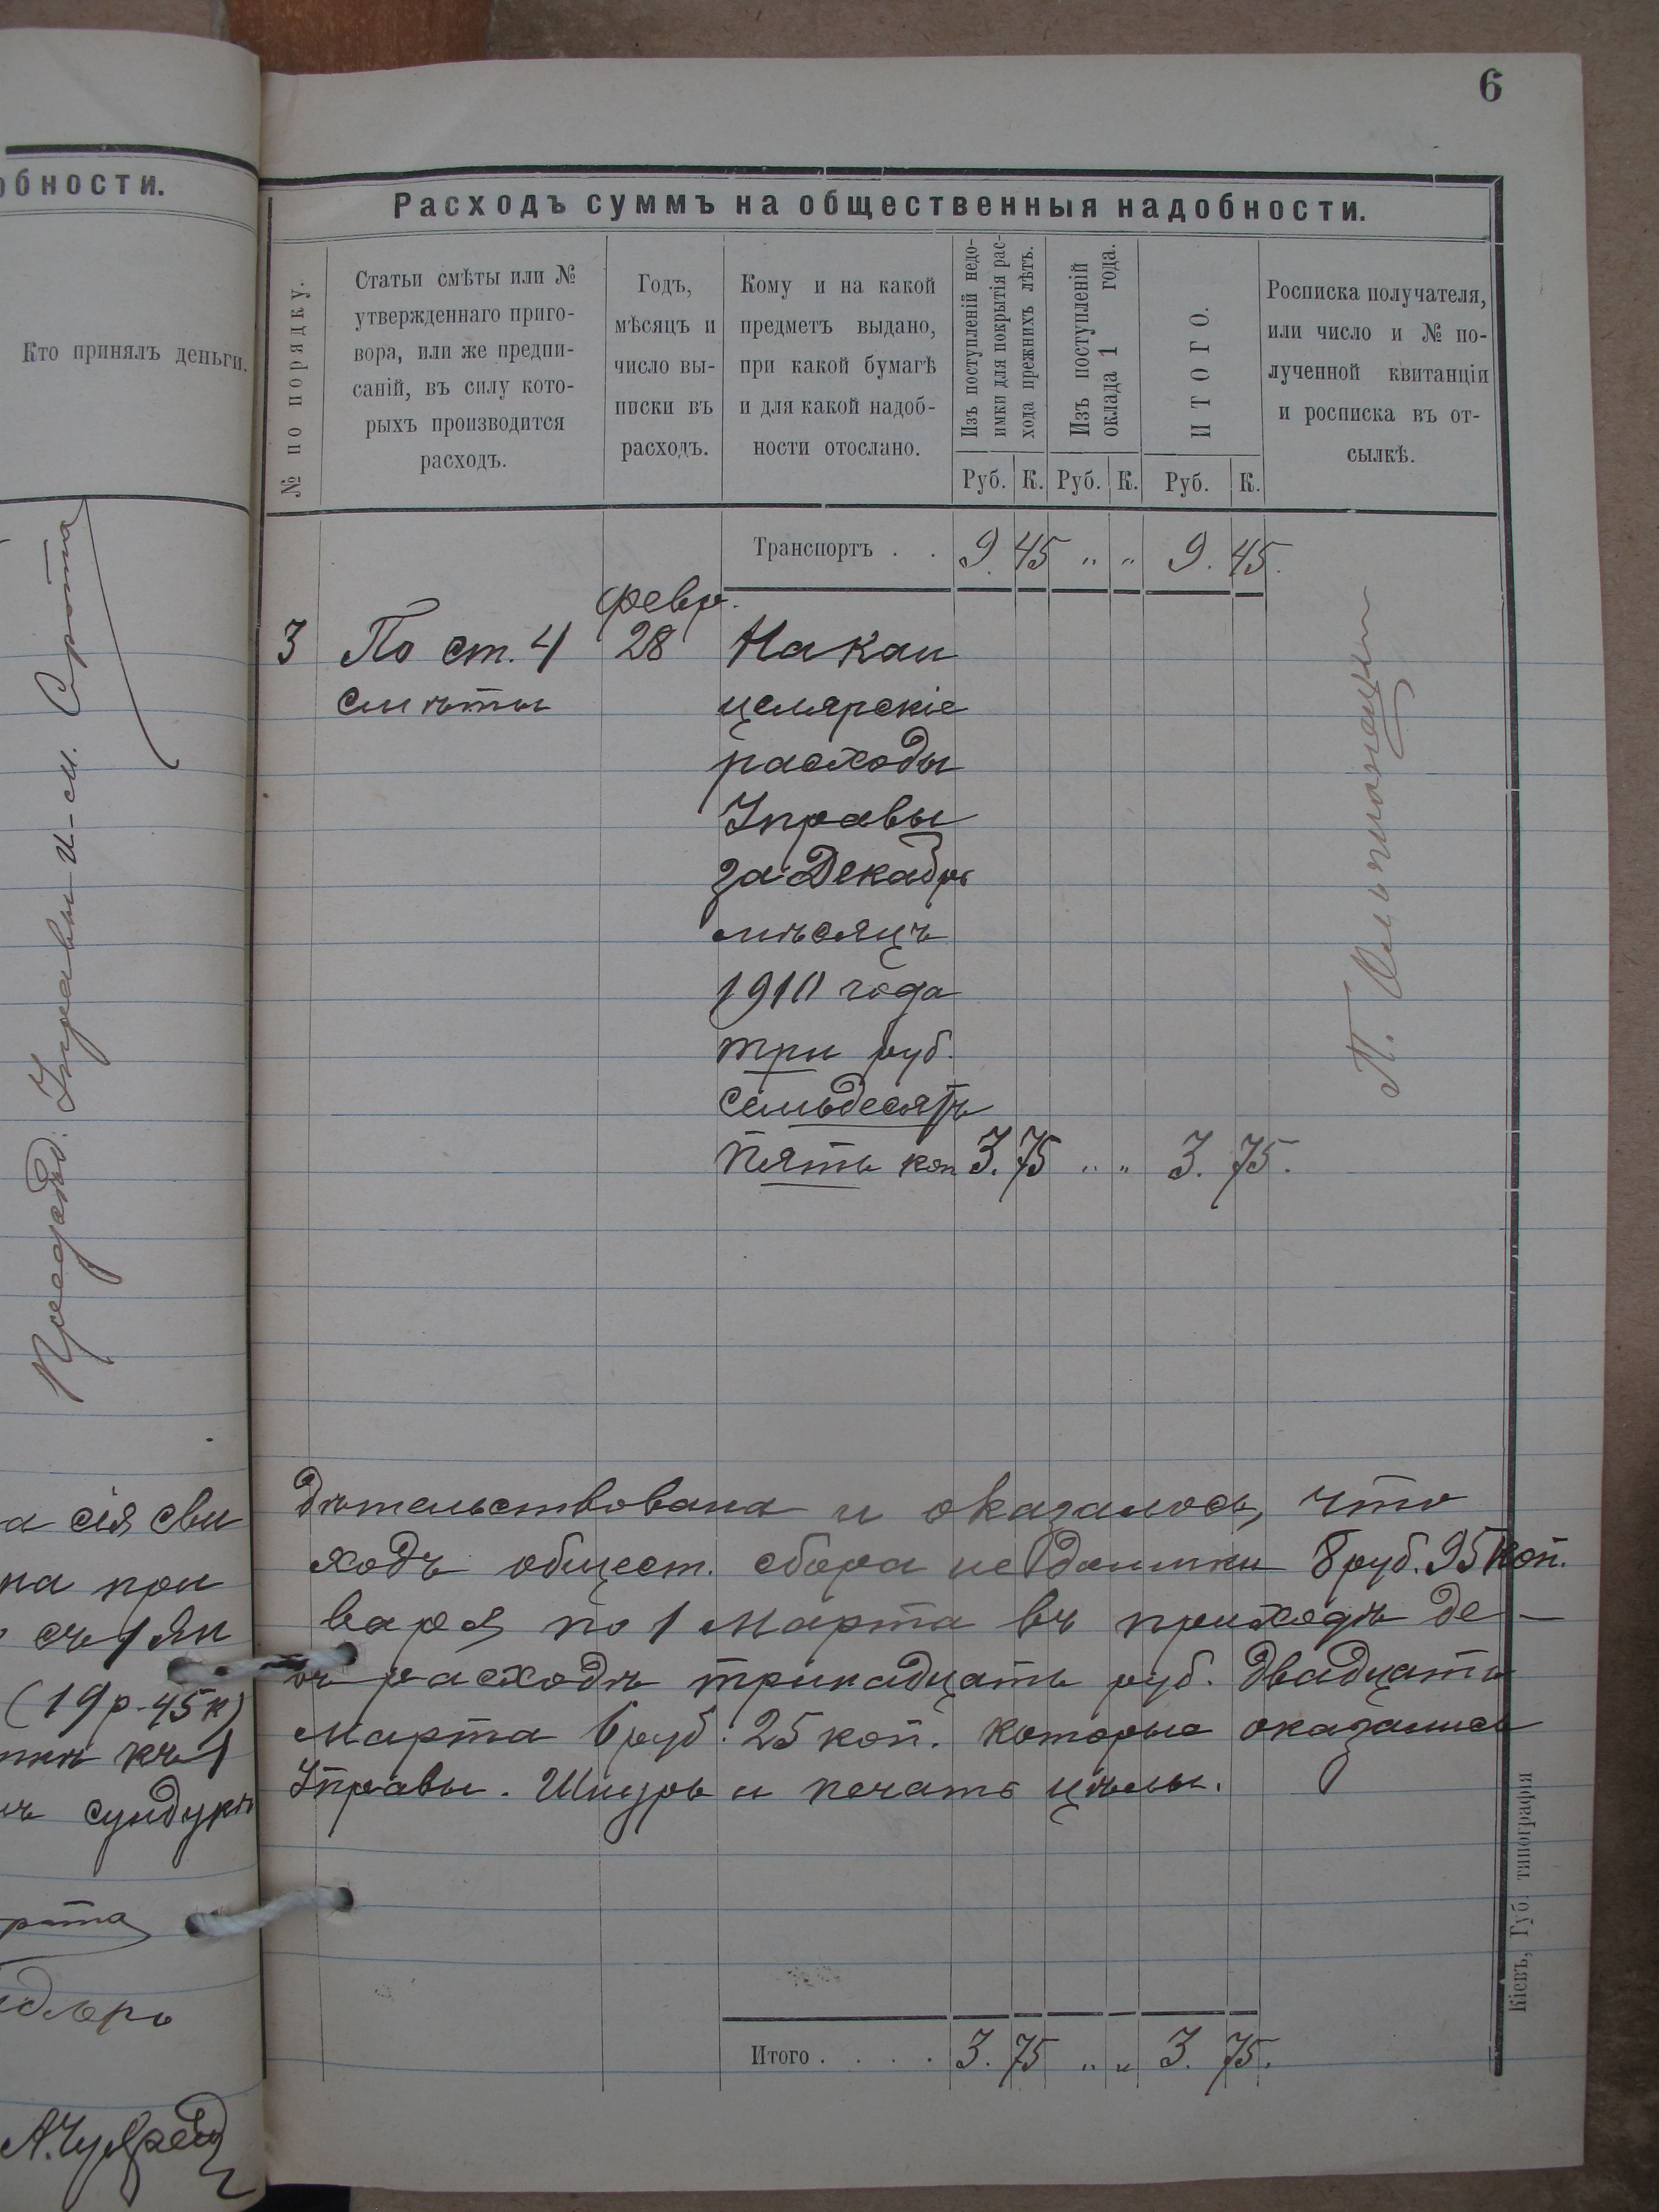 обности.
Кто принялъ деньги.
Предсѣд. Управы И-см. Сирота
а сія сви
на при
съ 1 Ян
(19 р. 45 к)
къ 1
сундукѣ
6
Расходъ суммъ на общественныя надобности.
№ по порядку.
Статьи смѣты или №
утвержденнаго приго-
вора, или же предпи-
саній, въ силу кото-
рыхъ производится
расходъ.
Годъ,
мѣсяцъ и
число вы-
писки въ
расходъ.
Кому и на какой
предметъ выдано,
при какой бумагѣ
и для какой надоб-
ности отослано.
Изъ поступленій недо-
имки для покрытія рас-
хода прежнихъ лѣтъ.
Изъ поступленій
оклада 1 года.
ИТОГО.
Росписка получателя,
или число и № по-
лученной квитанціи
и росписка въ от-
сылкѣ.
Руб. К. Руб. К. Руб. К.
Транспортъ . . 9. 45 " " 9. 45.
февр.
3 По ст. 4 28 На кан
смѣты целярскіе
расходы
Управы
за Декабрь
мѣсяцъ
1910 года
три руб.
семьдесятъ
пять коп 3. 75 " " 3. 75.
дѣтельствована и оказалось, что
ходъ общест. сбора недоимки 8 руб. 95 коп.
варя по 1 Марта въ приходѣ де-
въ расходѣ тринадцать руб. двадцать
Марта 6 руб. 25 коп. которые оказались
Управы. Шнуръ и печать цѣлы.
Итого . . . . 3. 75 " " 3. 75.
Кіевъ, Губ. типографія